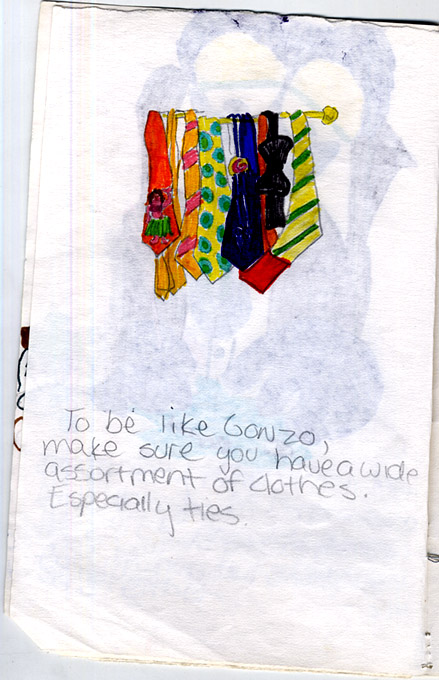 To be like Gonzo,
make sure you have a wide
assortment of clothes.
Especially ties.